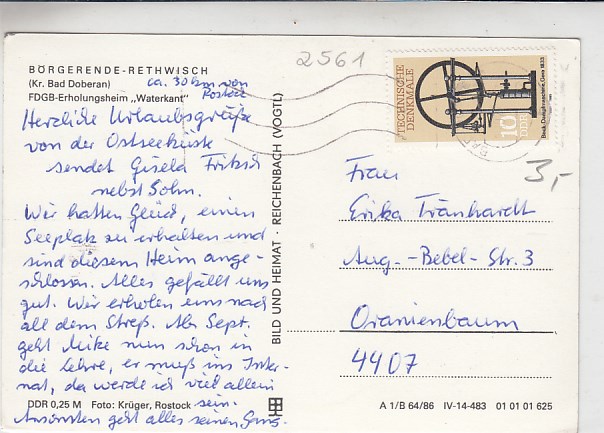 2561
BÖRGERENDE-RETHWISCH
(Kr. Bad Doberan) ca. 30 km von
FDGB-Erholungsheim „Waterkant" Rostock
Herzliche Urlaubsgrüße
von der Ostseeküste
sendet Gisela Fritsch
nebst Sohn.
Wir hatten Glück, einen
Seeplatz zu erhalten und
sind diesem Heim ange-
schlossen. Alles gefällt uns
gut. Wir erholen uns nach
all dem Streß. Ab Sept.
geht Mike nun schon in
die Lehre, er muß ins Inter-
nat, da werde ich viel allein
sein.
Ansonsten geht alles seinen Gang.
DDR 0,25 M Foto: Krüger, Rostock
BILD UND HEIMAT · REICHENBACH (VOGTL)
TECHNISCHE
DENKMALE
10
DDR
3,-
Frau
Erika Tränhardt
Aug.-Bebel-Str. 3
Oranienbaum
4407
A 1/B 64/86 IV-14-483 01 01 01 625